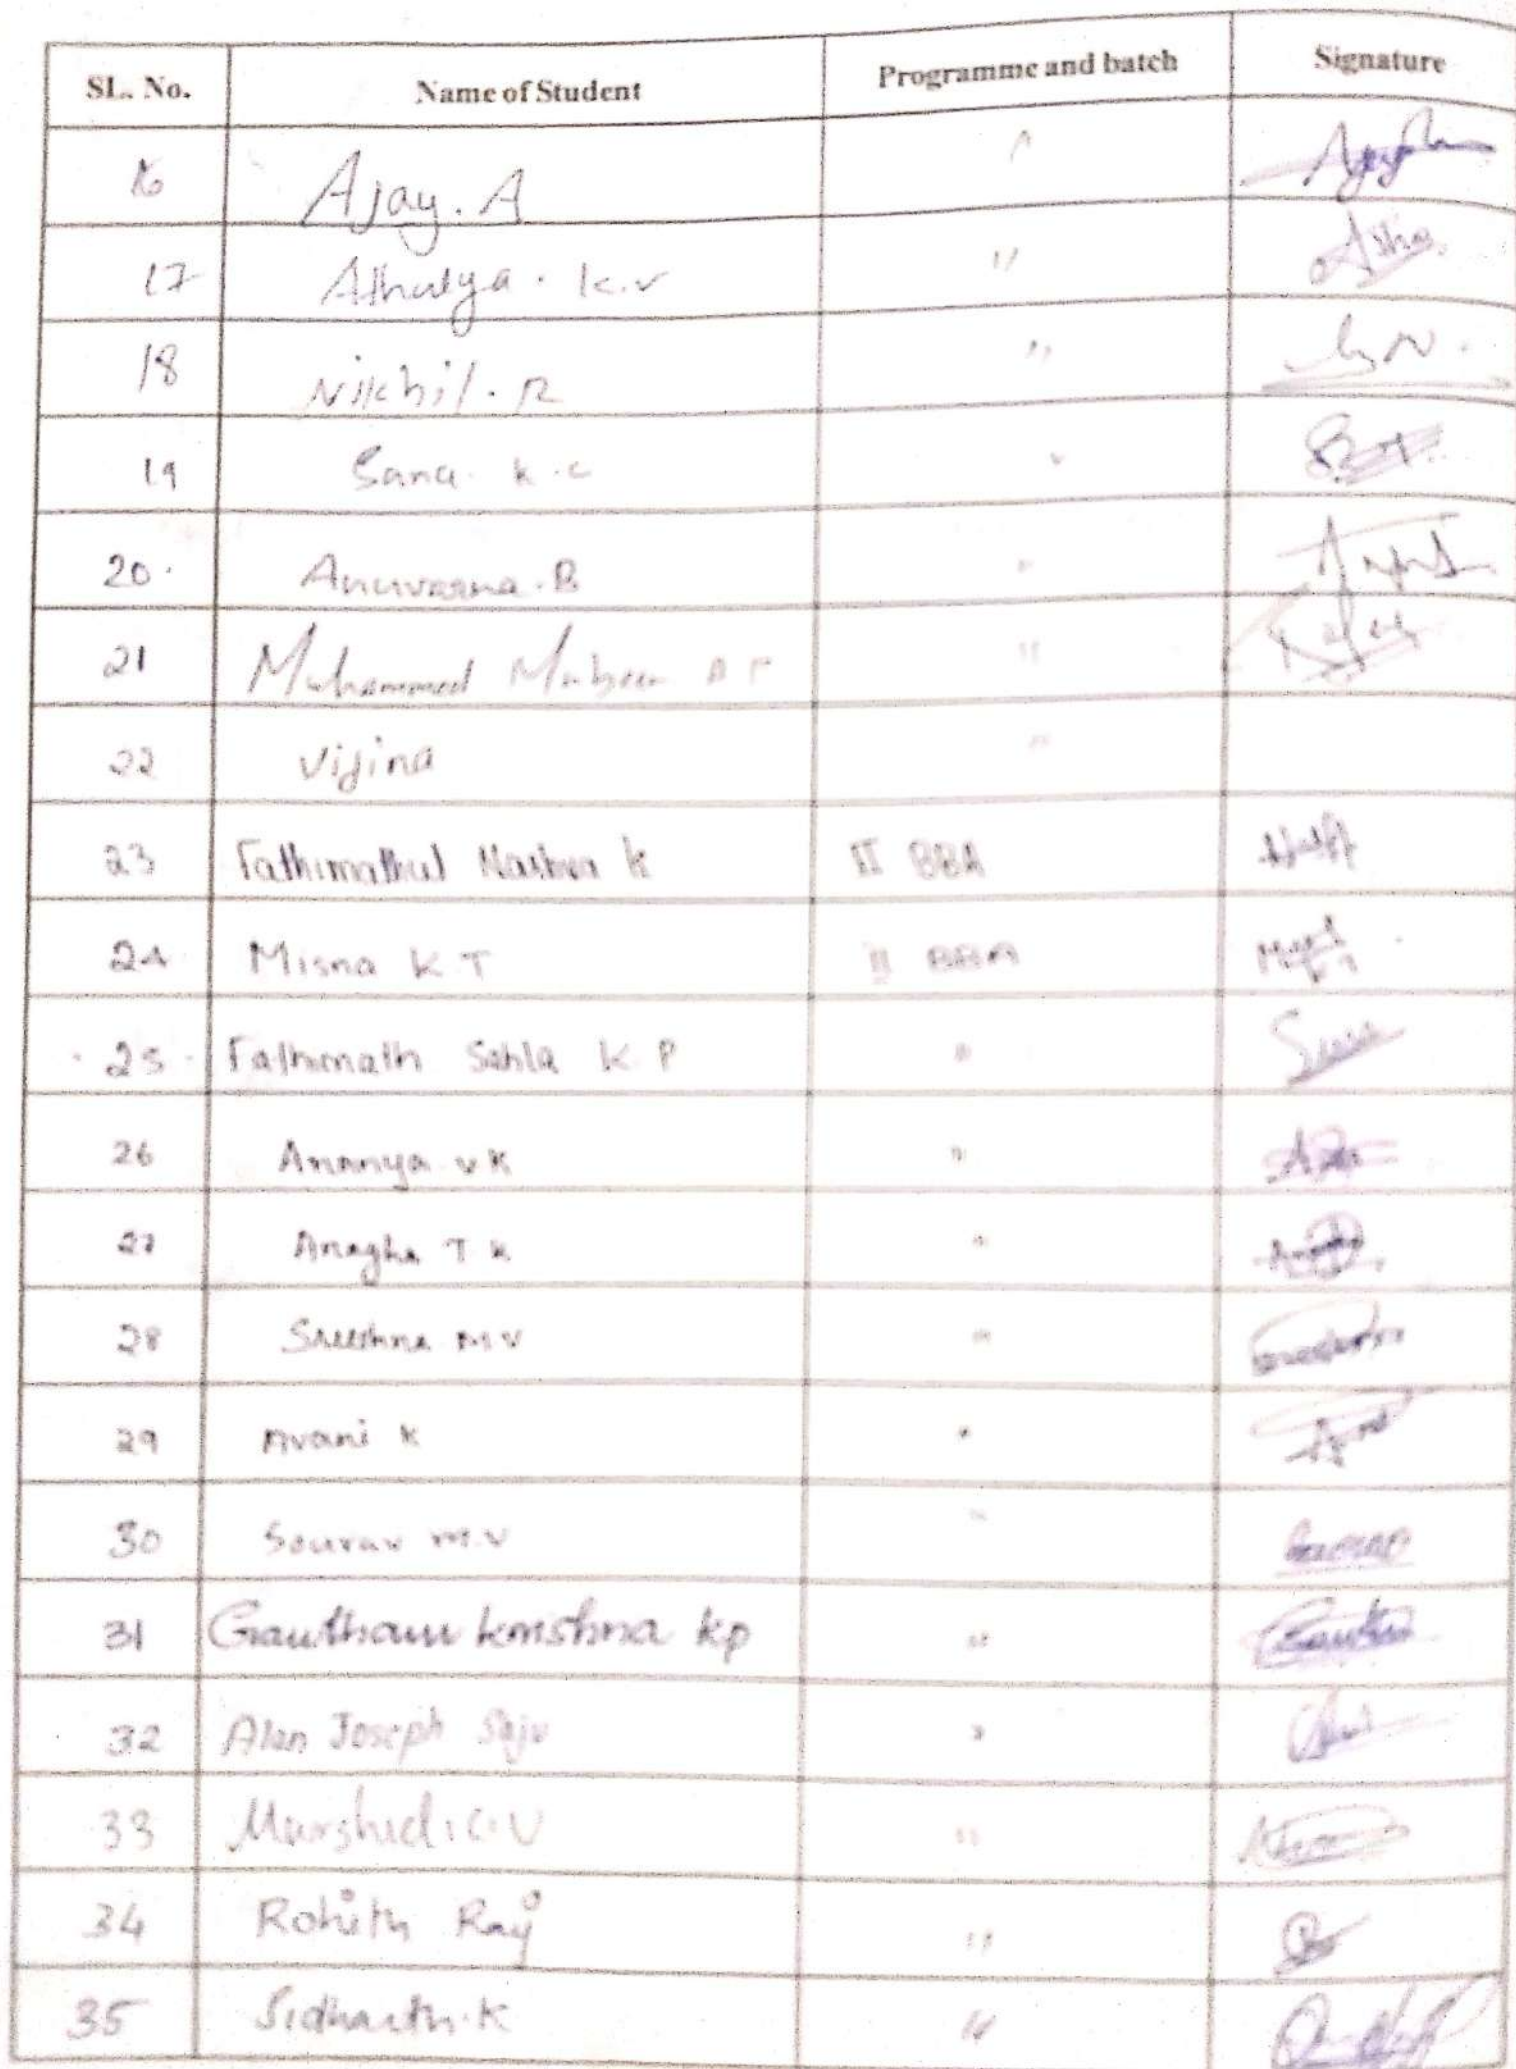 SL. No. Name of Student Programme and batch Signature
16 Ajay. A "
17 Athulya. k.v "
18 Nikhil. R "
19 Sana. k.c "
20. Anuvarna.B "
21 Muhammed "
22 Vijina "
23 Fathimathul Nashva k II BBA
24 Misna K T II BBA
25 Fathimath Sahla K P "
26 Ananya v k "
27 Anagha T k "
28 M V "
29 Avani k "
30 Sourav m.v "
31 Gautham krishna kp "
32 Alan Joseph Saju "
33 Murshid.C.V "
34 Rohith Raj "
35 Sidharth.k "